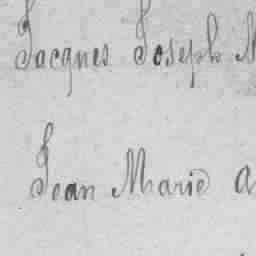 Jacques Joseph M
Jean Marie a